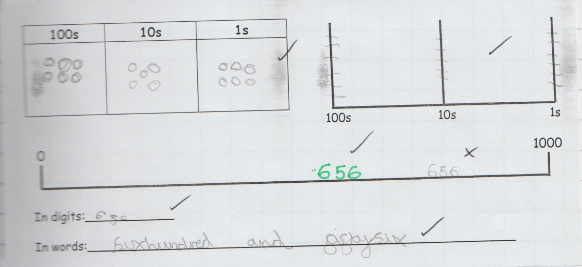 100s 10s 1s
100s 10s 1s
0 1000
656 656
In digits: 656
In words: sixhundred and